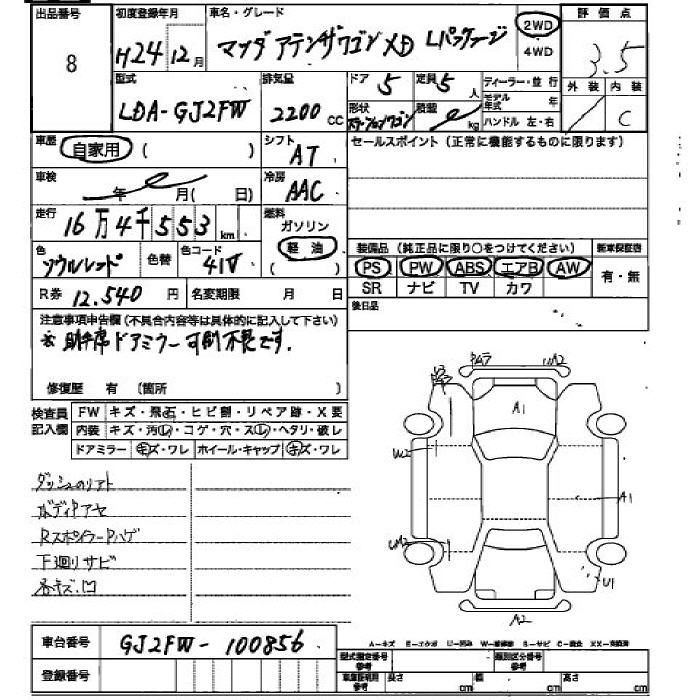 出品番号 初度登録年月 車名・グレード 評価点
8 H24 12月 マツダ アテンザワゴン XD Lパッケージ 2WD 4WD 3.5
型式 排気量 ドア 定員 ディーラー・並行 外装 内装
LDA-GJ2FW 2200 CC 5 5人 モデル年式 年
形状 ステーションワゴン 積載 kg ハンドル 左・右 C
車歴 自家用 ( ) シフト AT セールスポイント(正常に機能するものに限ります)
車検 年 月( 日) 冷房 AAC
走行 16万4千553km 燃料 ガソリン
色 ソウルレッド 色替 色コード 41V 軽油 ( ) 装備品(純正品に限り○をつけてください) 新車保証書
PS PW ABS エアB AW 有・無
R券 12.540円 名変期限 月 日 SR ナビ TV カワ
注意事項申告欄(不具合内容等は具体的に記入して下さい) 後日品
※助手席ドアミラー可倒不良です.
修復歴 有 (箇所 )
検査員記入欄 FW キズ・飛石・ヒビ割・リペア跡・X要
内装 キズ・汚レ・コゲ・穴・スレ・ヘタリ・破レ
ドアミラー キズ・ワレ ホイール・キャップ キズ・ワレ
ボディアセ
Rスポイラーハゲ
下廻りサビ
各キズ.凹
A1
A1
U1
A2
車台番号 GJ2FW-100856
登録番号
A-キズ E-エクボ U-凹み W-補修跡 S-サビ C-腐食 XX-交換済
型式指定番号参考 類別区分番号参考
車庫証明用参考 長さ cm 幅 cm 高さ cm